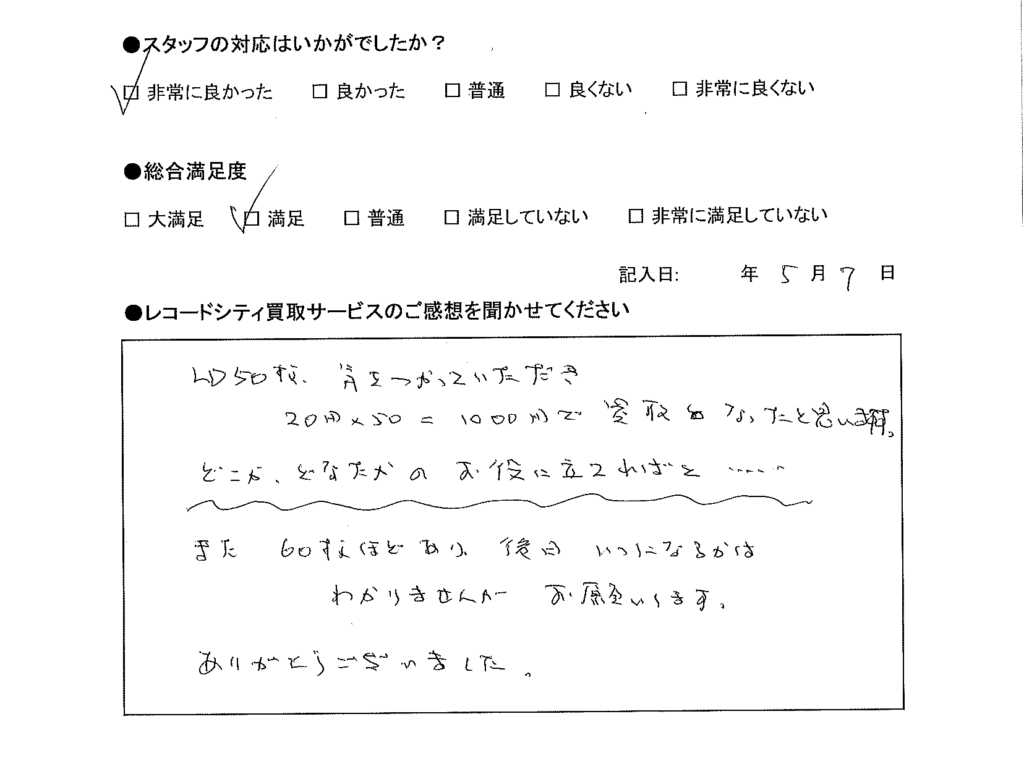 ●スタッフの対応はいかがでしたか？
□ 非常に良かった □ 良かった □ 普通 □ 良くない □ 非常に良くない
●総合満足度
□ 大満足 □ 満足 □ 普通 □ 満足していない □ 非常に満足していない
記入日: 年 5 月 7 日
●レコードシティ買取サービスのご感想を聞かせてください
LD50枚、気をつかっていただき
20円×50=1000円で 買取となったと思います。
どこか、どなたかの お役に立てればと ……
また 60枚ほどあり、後日 いつになるかは
わかりませんが お願いします。
ありがとうございました。